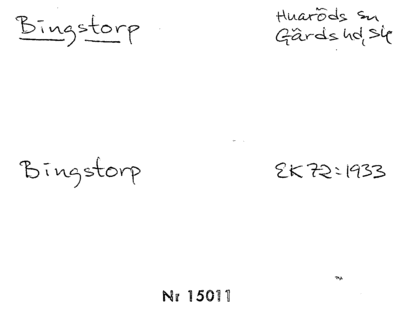 Bingstorp
Huaröds sn
Gärds hd, Sk
Bingstorp
EK 72:1933
Nr 15011